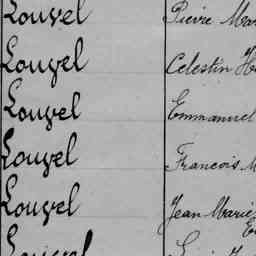 Louvel Pierre Mar
Louzel Celestin H
Louzel Emmanuel
Louzel Francois M
Louzel Jean Marie
Louvel